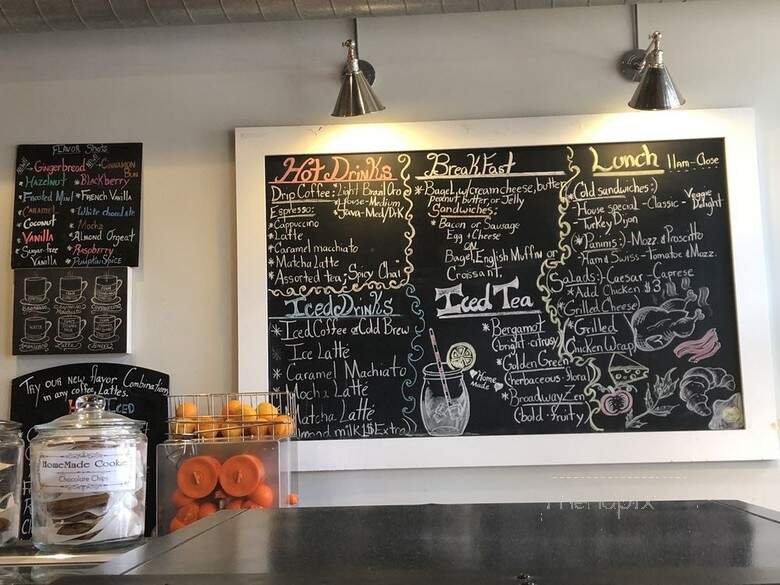 FLAVOR Shots
Gingerbread
Cinnamon Bun
Hazelnut
Blackberry
Frosted Mint
French Vanilla
Caramel
White chocolate
Coconut
Mocha
Vanilla
Almond Orgeat
Sugar-free Vanilla
Raspberry
Pumpkin Spice
Try our new flavor Combinations
in any coffee, Lattes.
ICED
HomeMade Cookie
Chocolate Chips
Hot Drinks
Drip Coffee: Light Brazil Oro
*House-Medium
*Java-Med/Drk
Espresso:
*Cappuccino
*Latte
*Caramel macchiato
*Matcha Latte
*Assorted tea; Spicy Chai
Iced Drinks
*Iced Coffee or Cold Brew
Ice Latte
*Caramel Machiato
*Mocha Latté
Matcha Latte
Almond milk 1$ Extra
BreakFast
*Bagel, w/cream cheese, butter
Peanut Butter, or Jelly
Sandwiches:
*Bacon or Sausage
Egg & Cheese
on
Bagel, English Muffin or
Croissant.
Iced Tea
*Bergamot
(bright-citrus)
*Golden Green
(herbaceous-floral)
*Broadway Zen
(bold-fruity)
*Home Made
Lunch 11am-Close
*Cold sandwiches:)
House special - Classic - Veggie Delight
- Turkey Dijon
*Paninis:) - Mozz & Proscitto
- Ham & Swiss - Tomatoe & Mozz.
Salads:) - Caesar - Caprese
*Add Chicken $3
*Grilled Cheese
*Grilled
Chicken Wrap